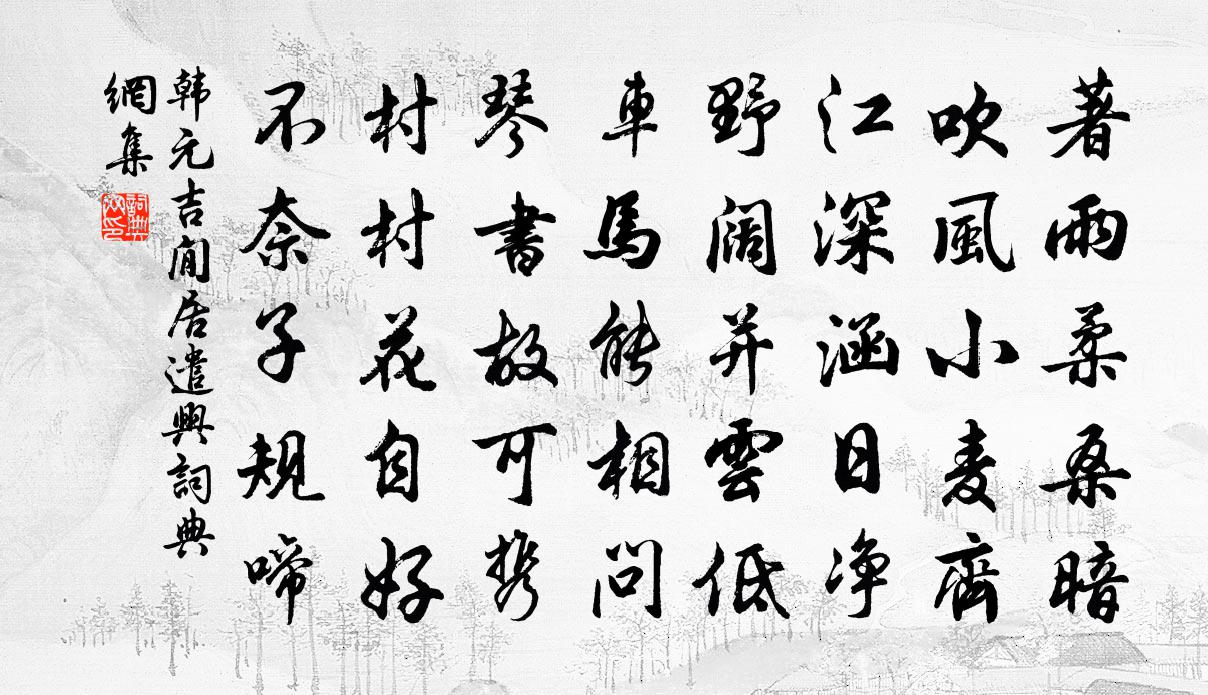 著雨柔桑暗
吹風小麦齊
江深涵日净
野阔并雲低
車馬能相問
琴書故可携
村村花自好
不奈子規啼
韩元吉閒居遣興詞典
網集
詞典網印